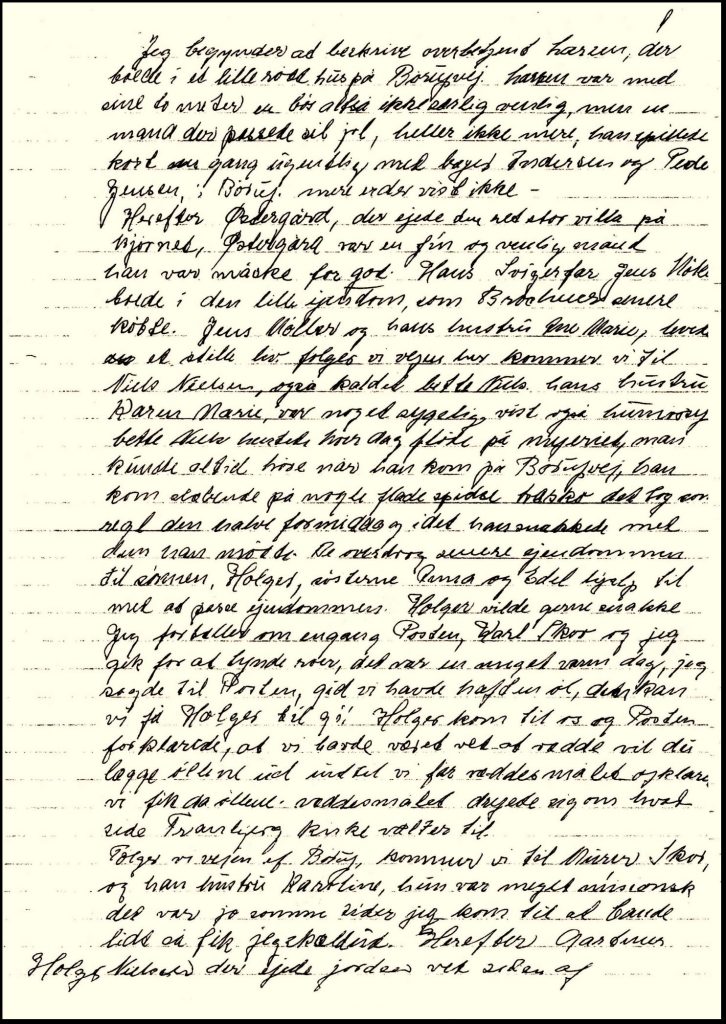 Jeg begynder at beskrive overbetjent hansen, der
boede i et lille rødt hus på Boruyvej. hansen var med
sine to meter en bør altid ikke særlig venlig, men en
mand der passede sit job, heller ikke mere, han spillede
kort en gang ugentlig med bager Andersen og Pede
Jensen, i Boruj. mere er der vist ikke –
Herefter Østergård, der ejede den ret stor villa på
hjørnet, Østergård var en fin og venlig mand
han var måske for god. Hans Svigerfar Jens Møle
boede i den lille ejendom, som Brochner senere
købte. Jens Møller og hans hustru Ane Marie, levede
et stille liv. følger vi vejen her kommer vi til
Niels Nielsen, også kaldet bette Niels. hans hustru
Karen Marie, var noget sygelig, vist også humørsy
bette Niels hentede hver dag fløde på mejeriet, man
kunde altid høre når han kom på Boruyvej, han
kom slæbende på nogle flade spidse træsko det tog som
regl den halve formiddag idet han snakkede med
dem han mødte. De overdrog senere ejendommen
til sønnen, Holger, søsterne Anna og Edel hjalp til
med at passe ejendommen. Holger vilde gerne snakke
Jeg fortæller om engang Posten, Karl Skov og jeg
gik for at tynde roer, det var en meget varm dag, jeg
sagde til Posten, gid vi havde haft en øl, den kan
vi få Holger til gi! Holger kom til os og Posten
forklarede, at vi havde været ved at vædde vil du
lægge øllene ud indtil vi får væddesmålet afklare
vi fik da øllene. væddesmålet drejede sig om hvad
side Tranbjerg kirke vælter til.
Følger vi vejen af Boruj, kommer vi til Murer Skov,
og han hustru Karoline, hun var meget missionsk
det var jo somme tider jeg kom til at bande
lidt så fik jeg skældud. Herefter Gartner
Holger Nielsen der ejede jorden ved siden af